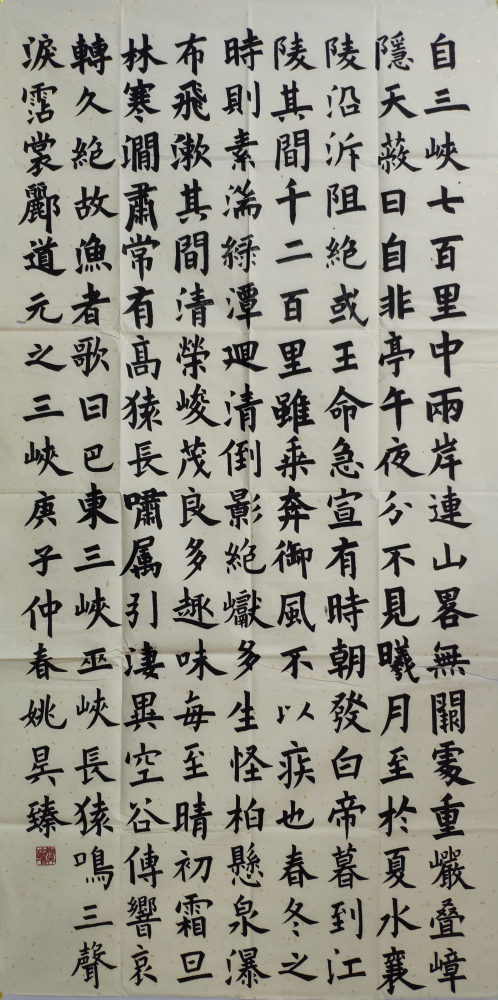 自三峽七百里中兩岸連山畧無闕處重巖疊嶂
隱天蔽日自非亭午夜分不見曦月至於夏水襄
陵沿泝阻絕或王命急宣有時朝發白帝暮到江
陵其間千二百里雖乘奔御風不以疾也春冬之
時則素湍綠潭迴清倒影絕巘多生怪柏懸泉瀑
布飛漱其間清榮峻茂良多趣味每至晴初霜旦
林寒澗肅常有高猿長嘯属引淒異空谷傳響哀
轉久絕故漁者歌曰巴東三峽巫峽長猿鳴三聲
淚霑裳酈道元之三峽庚子仲春姚昊臻